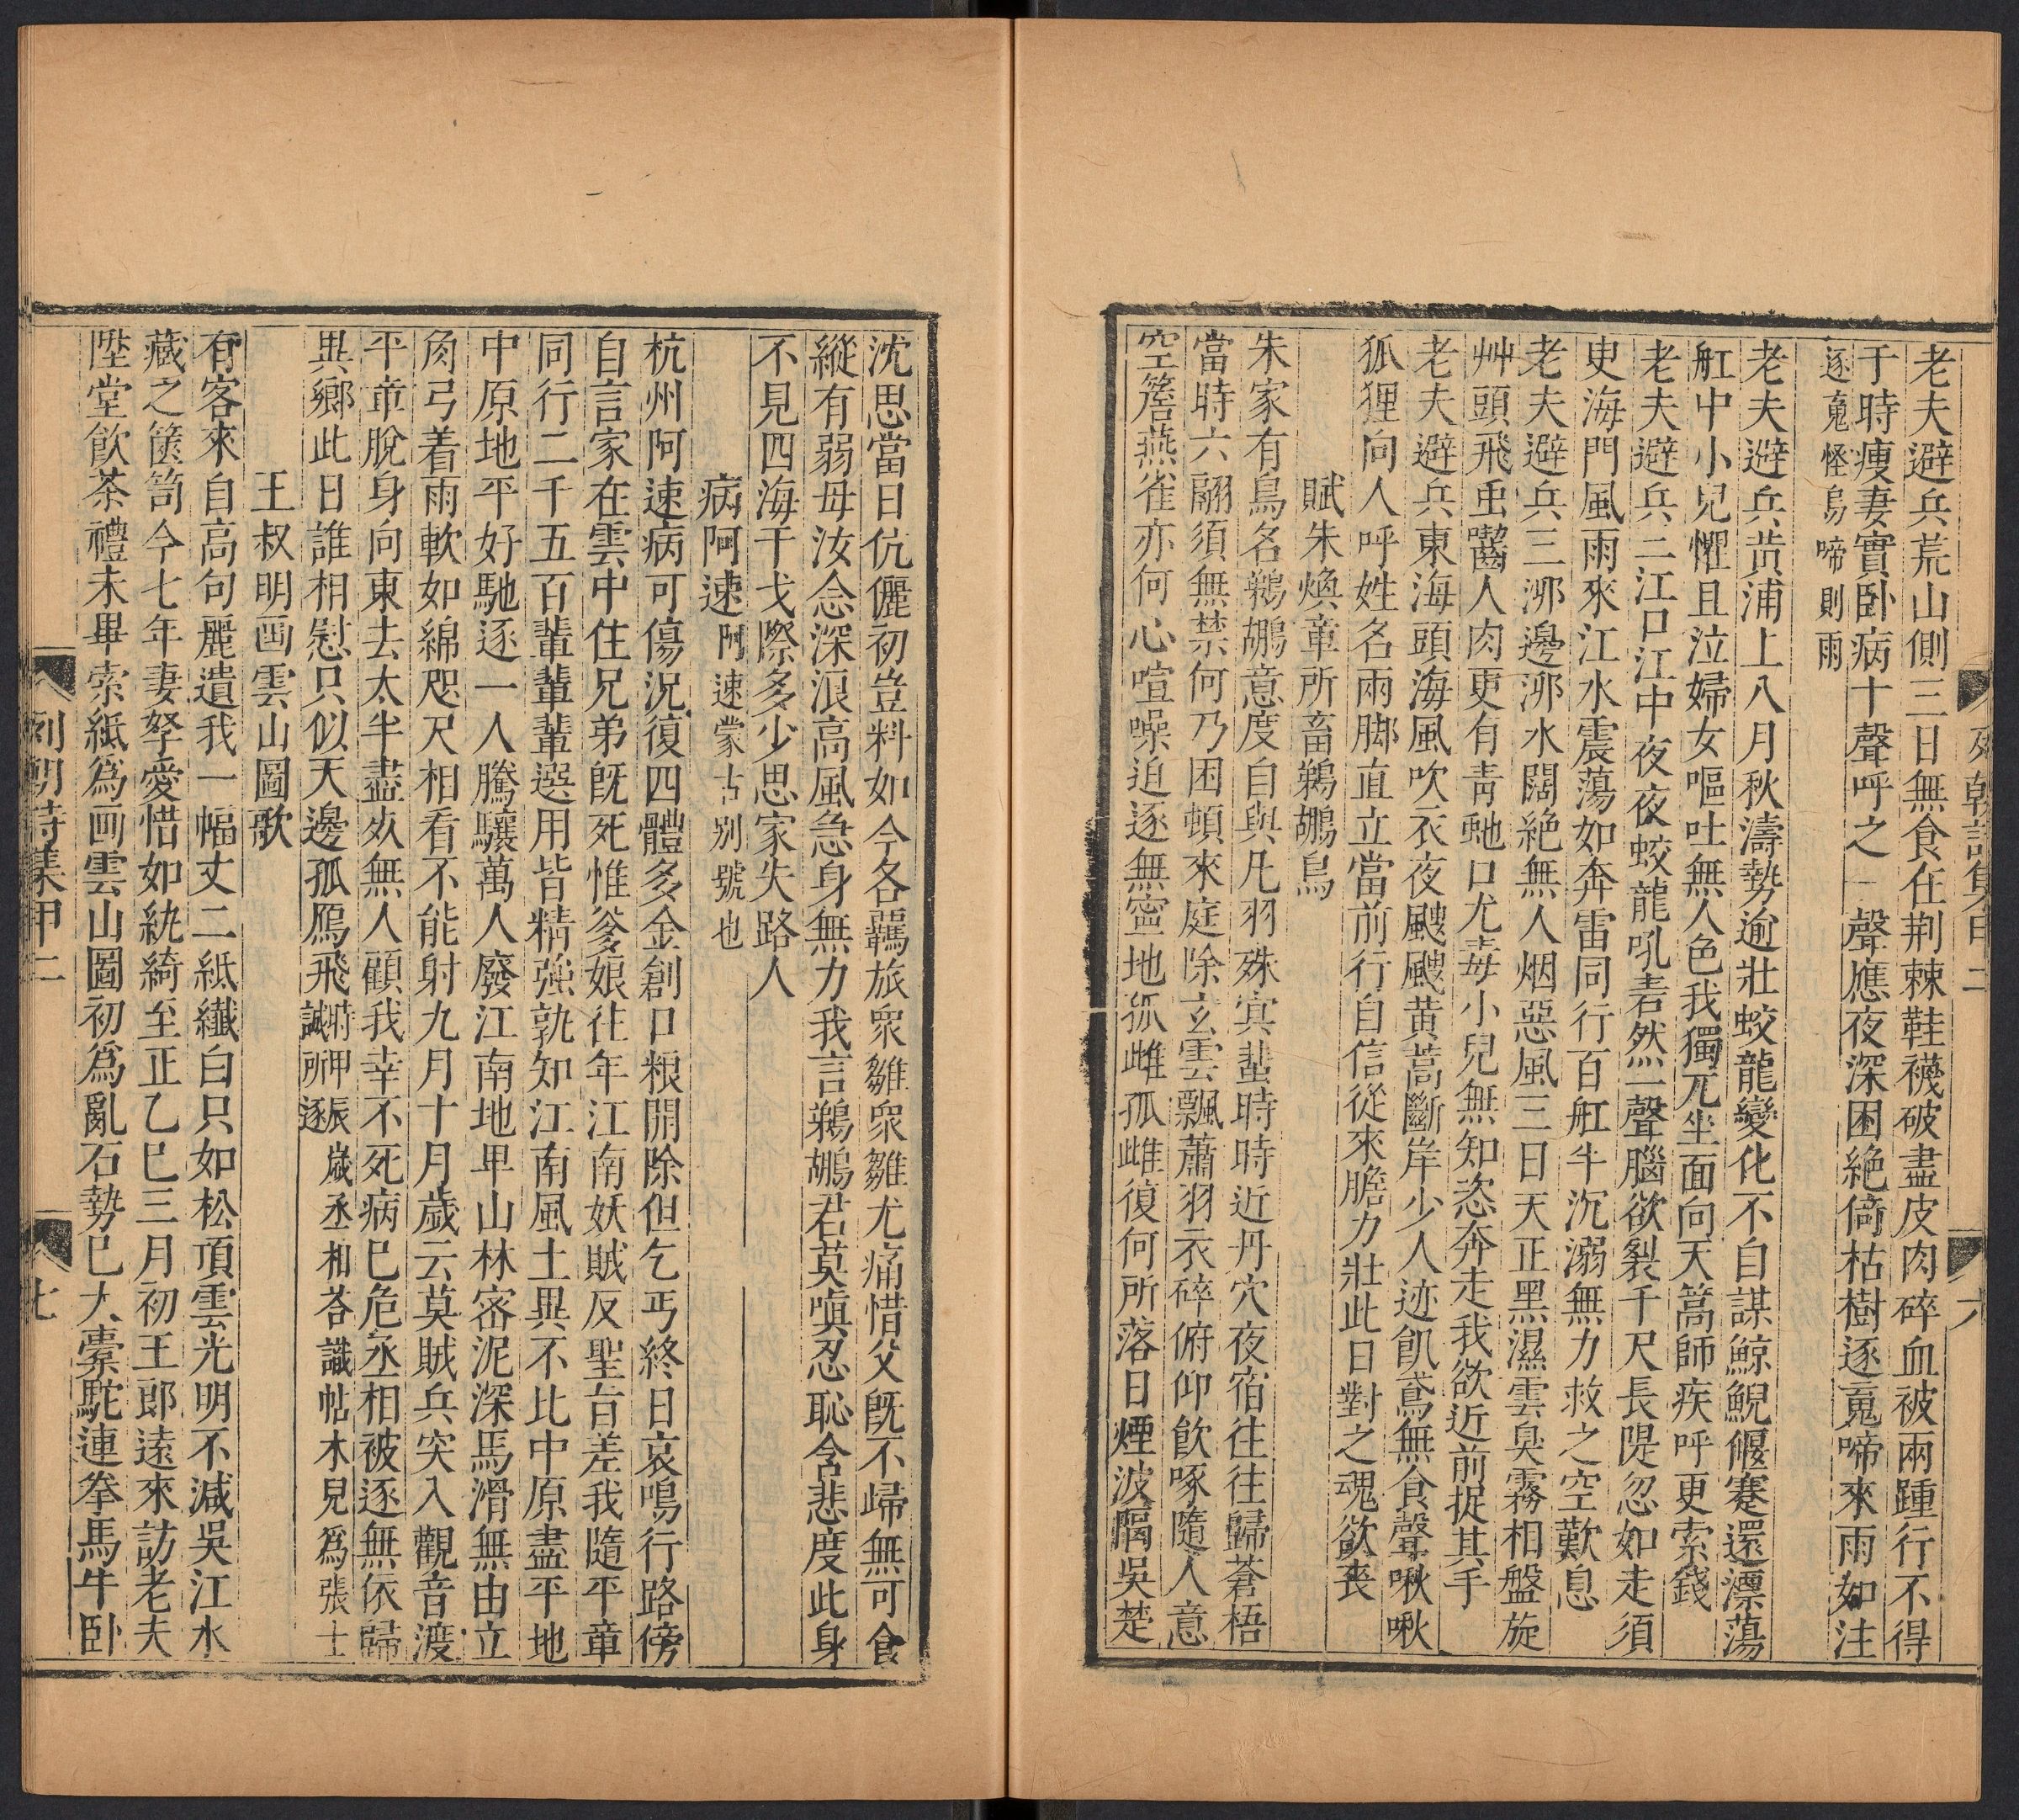 老夫避兵荒山側三日無食在荆棘鞋襪破盡皮肉碎血被兩踵行不得
于時痩妻實卧病十聲呼之一聲應夜深困絶倚枯樹逐䰟啼來雨如注
逐䰟怪鳥啼則雨
老夫避兵黄浦上八月秋濤勢逾壯蛟龍變化不自謀鯨鯢偃蹇還漂蕩
舡中小兒懼且泣婦女嘔吐無人色我獨兀坐面向天篙師疾呼更索錢
老夫避兵二江口江中夜夜蛟龍吼砉然一聲腦欲裂千尺長隄忽如走須
叓海門風雨來江水震蕩如奔雷同行百舡半沉溺無力救之空歎息
老夫避兵三泖邊泖水闊絶無人烟惡風三日天正黑濕雲臭霧相盤旋
艸頭飛䖝囓人肉更有靑虵口尤毒小兒無知恣奔走我欲近前捉其手
老夫避兵東海頭海風吹衣夜颼颼黄蒿斷岸少人迹飢鳶無食聲啾啾
狐狸向人呼姓名兩脚直立當前行自信從來膽力壯此日對之魂欲喪
賦朱煥章所畜鵜鶘鳥
朱家有鳥名鵜鶘意度自與凡羽殊㝠蜚時時近丹穴夜宿往往歸蒼梧
當時六翮須無禁何乃困頓來庭除玄雲飄蕭羽衣碎俯仰飲啄隨人意
空簷燕雀亦何心喧噪迫逐無寧地孤雌孤雌復何所落日煙波隔吳楚
列朝詩集甲二
六
沈思當日伉儷初豈料如今各羈旅衆雛衆雛尤痛惜父旣不歸無可食
縱有弱母汝念深浪高風急身無力我言鵜鶘君莫嗔忍恥含悲度此身
不見四海干戈際多少思家失路人
病阿速阿速蒙古别號也
杭州阿速病可傷況復四體多金創口粮開除但乞丐終日哀鳴行路傍
自言家在雲中住兄弟旣死惟爹娘往年江南妖賊反聖旨差我隨平章
同行二千五百輩輩輩選用皆精強孰知江南風土異不比中原盡平地
中原地平好馳逐一人騰驤萬人廢江南地卑山林宻泥深馬滑無由立
角弓着雨軟如綿咫尺相看不能射九月十月歲云莫賊兵突入觀音渡
平章脫身向東去太半盡死無人顧我幸不死病已危丞相被逐無依歸
異鄉此日誰相慰只似天邊孤鴈飛時甲辰歲丞相荅讖帖木兒爲張士
誠所逐
王叔明画雲山圖歌
有客來自高句麗遺我一幅丈二紙纎白只如松頂雲光明不減吳江水
藏之篋笥今七年妻孥愛惜如紈綺至正乙巳三月初王郎遠來訪老夫
陞堂飮茶禮未畢索紙爲画雲山圖初爲亂石勢已大橐駝連拳馬牛卧
列朝詩集甲二
七